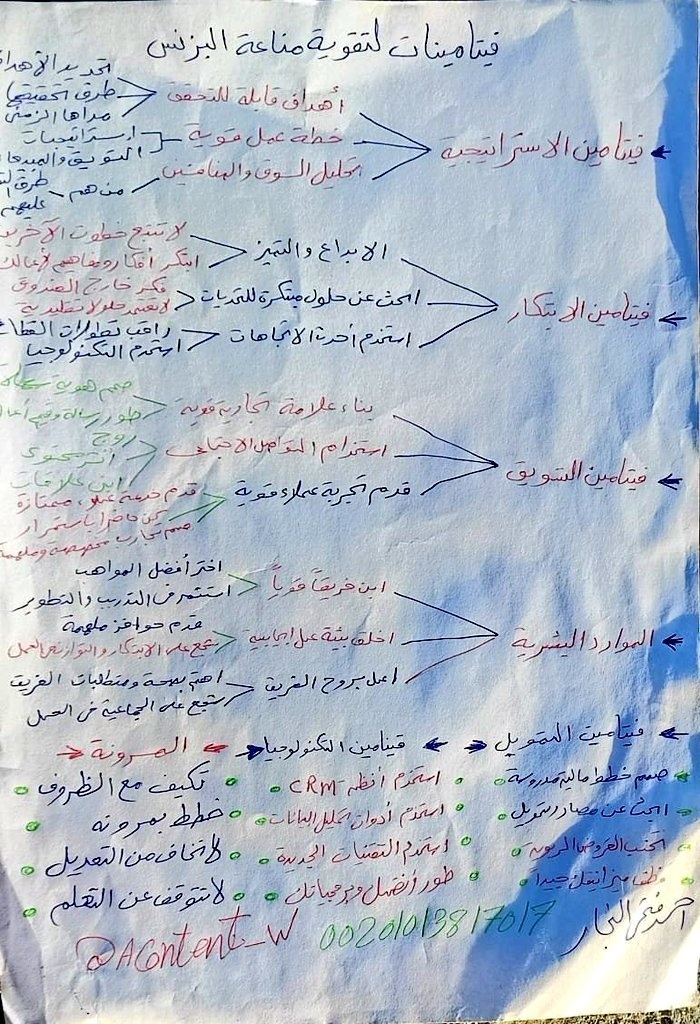 فيتامينات لتقوية مناعة البزنس
فيتامين الاستراتيجية
أهداف قابلة للتحقق
تحديد الأهداف
طرق تحقيقها
مداها الزمني
خطة عمل قوية
استراتيجيات
التسويق والمبيعات
تحليل السوق والمنافسين
من هم
عليهم
فيتامين الابتكار
الابداع والتميز
لا تتبع خطوات الآخرين
ابتكر أفكار ومفاهيم لأعمالك
ابحث عن حلول مبتكرة للتحديات
فكر خارج الصندوق
لا تعتمد حلولا تقليدية
استخدم أحدث الاتجاهات
راقب تطورات القطاع
استخدم التكنولوجيا
فيتامين التسويق
بناء علامة تجارية قوية
صمم هوية
طور رسالة وقيم
استخدام التواصل الاجتماعي
روج
انشر محتوى
ابن علاقات
قدم تجربة عملاء قوية
قدم خدمة عملاء ممتازة
كن حاضرا باستمرار
صمم تجارب مخصصة وملهمة
الموارد البشرية
ابن فريقاً قوياً
اختر أفضل المواهب
استثمر في التدريب والتطوير
اخلق بيئة عمل ايجابية
قدم حوافز ملهمة
شجع على الابتكار والتوازن في العمل
اعمل بروح الفريق
اهتم بصحة ومتطلبات الفريق
شجع على الجماعية في العمل
فيتامين التمويل
صمم خطط مالية مدروسة
ابحث عن مصادر تمويل
تجنب القروض
فيتامين التكنولوجيا
استخدم أنظمة CRM
استخدم أدوات تحليل البيانات
استخدم التقنيات الجديدة
طور أنضمتك وبرمجياتك
المرونة
تكيف مع الظروف
خطط بمرونه
لا تخاف من التعديل
لا تتوقف عن التعلم
النجار
00201013817017
@AContent_W